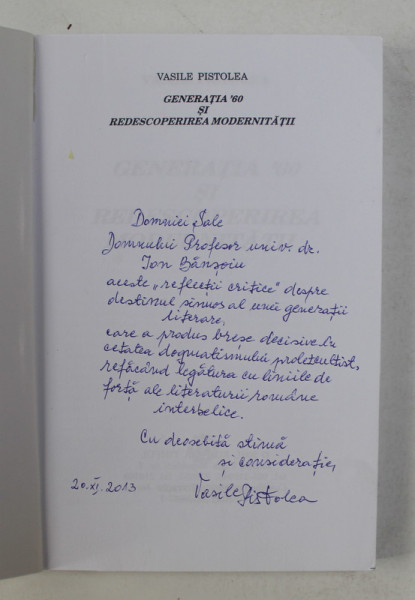 VASILE PISTOLEA
GENERAȚIA '60
ȘI
REDESCOPERIREA MODERNITĂȚII
Domniei Sale
Domnului Profesor univ. dr.
Ion Bănșoiu
aceste „reflecții critice” despre
destinul sinuos al unei generații
literare,
care a produs breșe decisive în
cetatea dogmatismului proletcultist,
refăcând legătura cu liniile de
forță ale literaturii române
interbelice.
Cu deosebită stimă
și considerație,
20.XI.2013 Vasile Pistolea